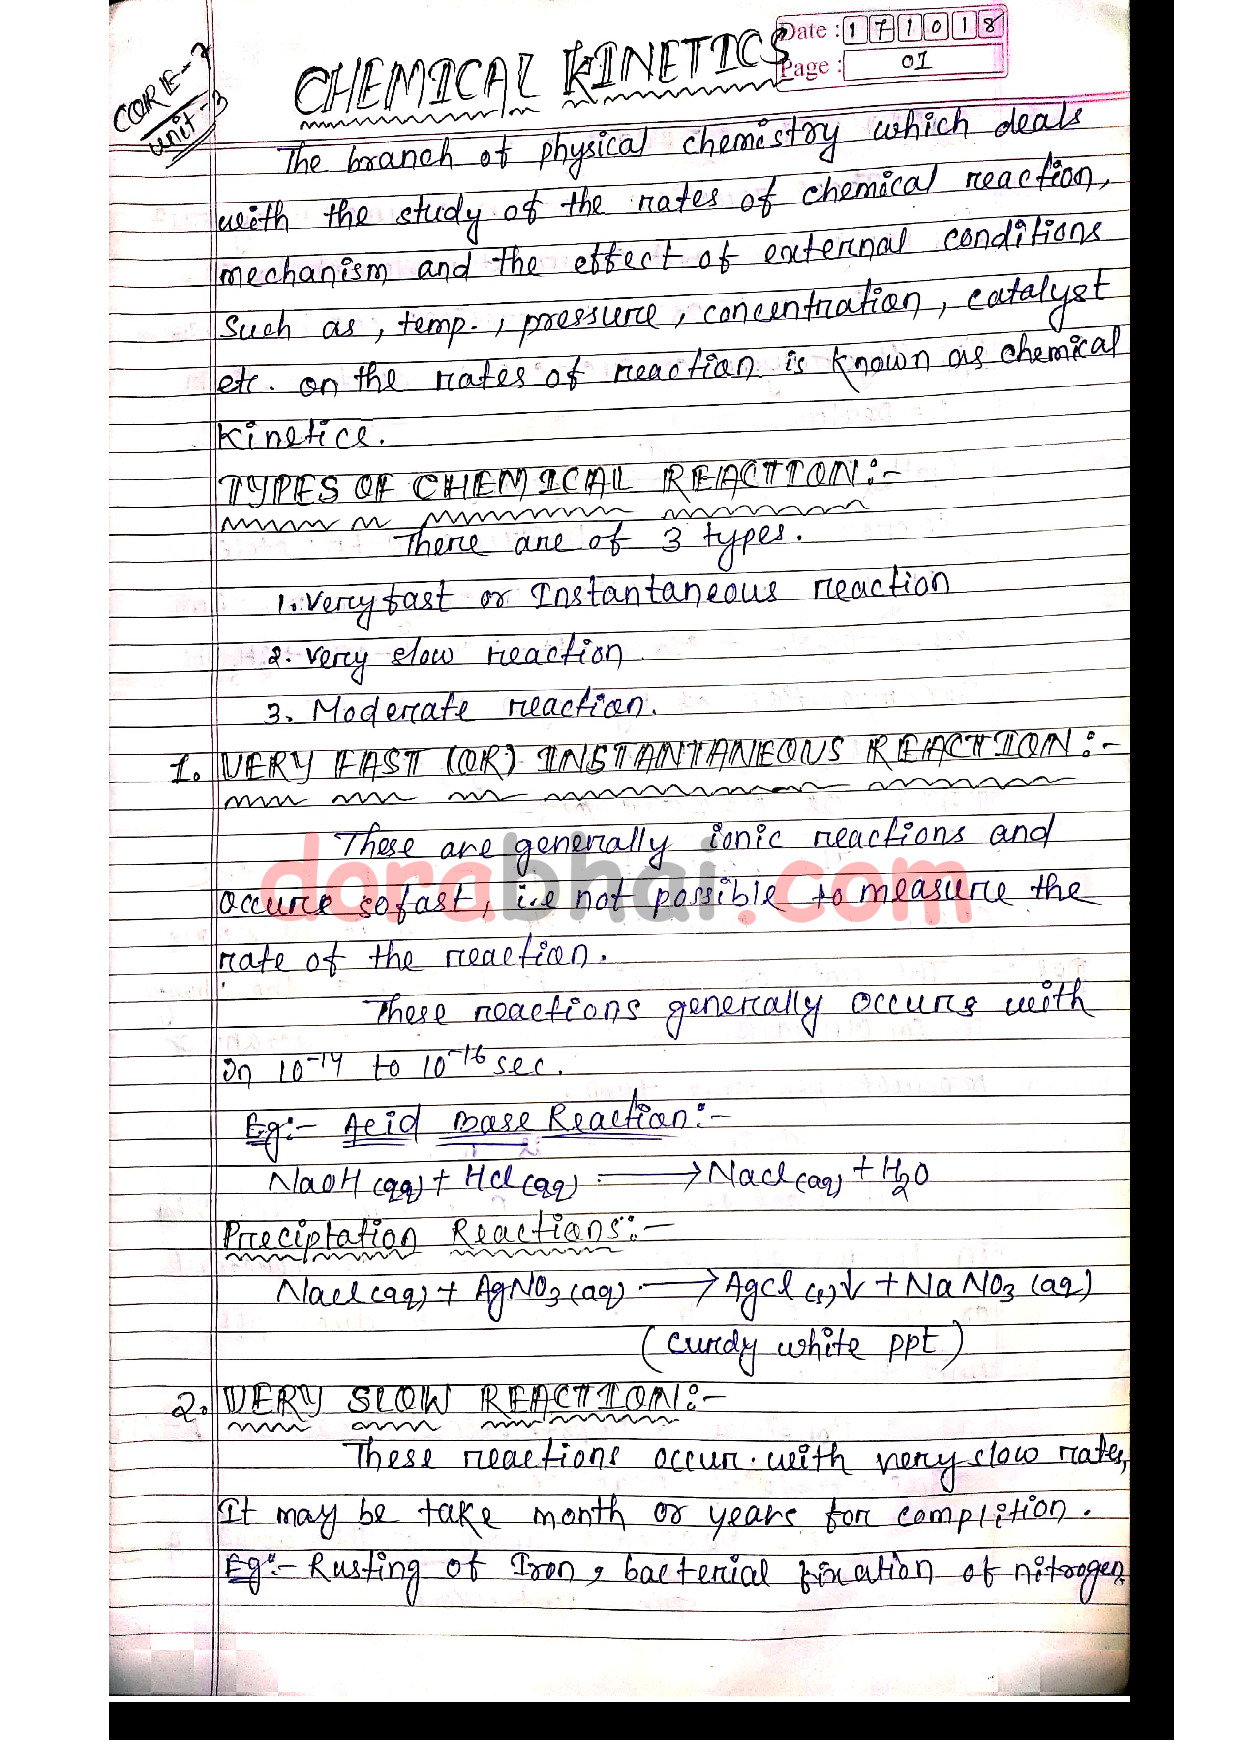 CORE-7
Unit-3
Date: 171018
Page: 01
CHEMICAL KINETICS
The branch of physical chemistry which deals
with the study of the rates of chemical reaction,
mechanism and the effect of external conditions
Such as, temp., pressure, concentration, catalyst
etc. on the rates of reaction is known as chemical
Kinetice.
TYPES OF CHEMICAL REACTION:-
There are of 3 types.
1. Very fast or Instantaneous reaction
2. Very slow reaction
3. Moderate reaction.
1. VERY FAST (OR) INSTANTANEOUS REACTION:-
These are generally ionic reactions and
occure so fast, i.e not possible to measure the
rate of the reaction.
These reactions generally occurs with
In 10⁻¹⁴ to 10⁻¹⁶ sec.
Eg:- Acid Base Reaction:-
NaOH(aq) + HCl(aq) ⟶ NaCl(aq) + H₂O
Preciptation Reactions:-
NaCl(aq) + AgNO₃(aq) ⟶ AgCl(s)↓ + NaNO₃(aq)
(Curdy white ppt)
2. VERY SLOW REACTION:-
These reactions occur with very slow rates,
It may be take month or years for complition.
Eg:- Rusting of Iron, bacterial fixation of nitrogen.
dorabhai.com